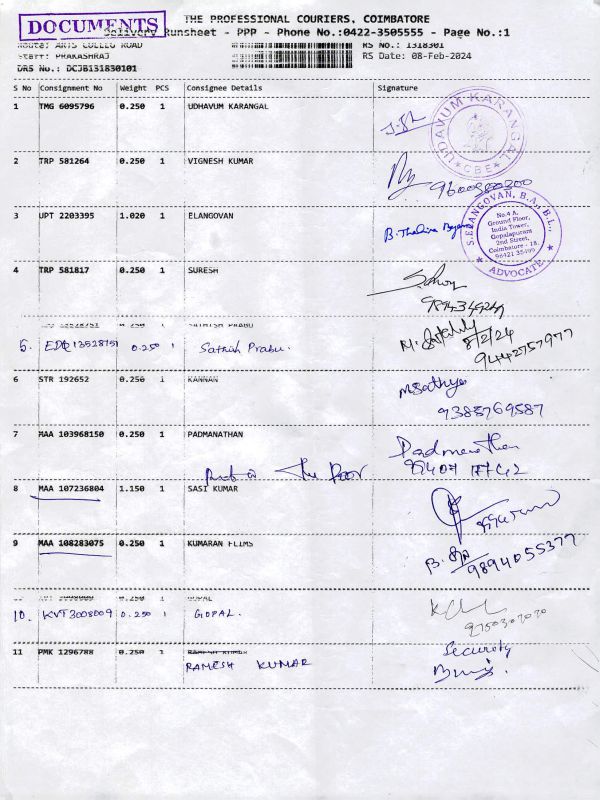 DOCUMENTS
THE PROFESSIONAL COURIERS, COIMBATORE
Delivery Runsheet - PPP - Phone No.:0422-3505555 - Page No.:1
Route: ARTS COLLEG ROAD
RS No.: 1318301
Staff: PRAKASHRAJ
RS Date: 08-Feb-2024
DRS No.: DCJB131830101
S No Consignment No Weight PCS Consignee Details Signature
1 TMG 6095796 0.250 1 UDHAVUM KARANGAL
UDAVUM KARANGAL
CBE
2 TRP 581264 0.250 1 VIGNESH KUMAR
9600900300
3 UPT 2203395 1.020 1 ELANGOVAN
S.ELANGOVAN, B.A., B.L.,
No.4 A,
Ground Floor,
India Tower,
Gopalapuram
2nd Street,
Coimbatore - 18.
96421 35499
ADVOCATE
4 TRP 581817 0.250 1 SURESH
SATHISH PRABU
5. EDQ 13528751 0.250 1 Sathish Prabu.
8/2/24
9442757977
6 STR 192652 0.250 1 KANNAN
M.Sathya
9385769587
7 MAA 103968150 0.250 1 PADMANATHAN
Padmanathan
The Door
8 MAA 107236804 1.150 1 SASI KUMAR
9 MAA 108283075 0.250 1 KUMARAN FLIMS
9894055377
10. KVT3008009 0.250 1 GOPAL.
11 PMK 1296788 0.250 1 RAMESH KUMAR
RAMESH KUMAR
Security